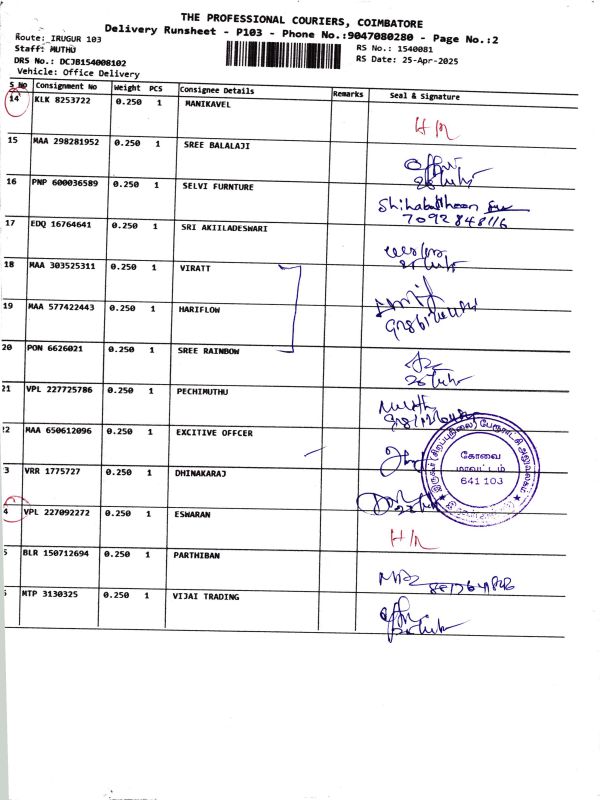 THE PROFESSIONAL COURIERS, COIMBATORE
Delivery Runsheet - P103 - Phone No.:9047080280 - Page No.:2
Route: IRUGUR 103
Staff: MUTHU
RS No.: 1540081
DRS No.: DCJB154008102
RS Date: 25-Apr-2025
Vehicle: Office Delivery
S No Consignment No Weight PCS Consignee Details Remarks Seal & Signature
14 KLK 8253722 0.250 1 MANIKAVEL
15 MAA 298281952 0.250 1 SREE BALALAJI
16 PNP 600036589 0.250 1 SELVI FURNTURE
7092848116
17 EDQ 16764641 0.250 1 SRI AKIILADESWARI
18 MAA 303525311 0.250 1 VIRATT
19 MAA 577422443 0.250 1 HARIFLOW
20 PON 6626021 0.250 1 SREE RAINBOW
21 VPL 227725786 0.250 1 PECHIMUTHU
22 MAA 650612096 0.250 1 EXCITIVE OFFCER
3 VRR 1775727 0.250 1 DHINAKARAJ
4 VPL 227092272 0.250 1 ESWARAN
5 BLR 150712694 0.250 1 PARTHIBAN
MTP 3130325 0.250 1 VIJAI TRADING
இருகூர் (சிறப்புநிலை) பேரூராட்சி அலுவலகம்
கோவை
மாவட்டம்
641 103